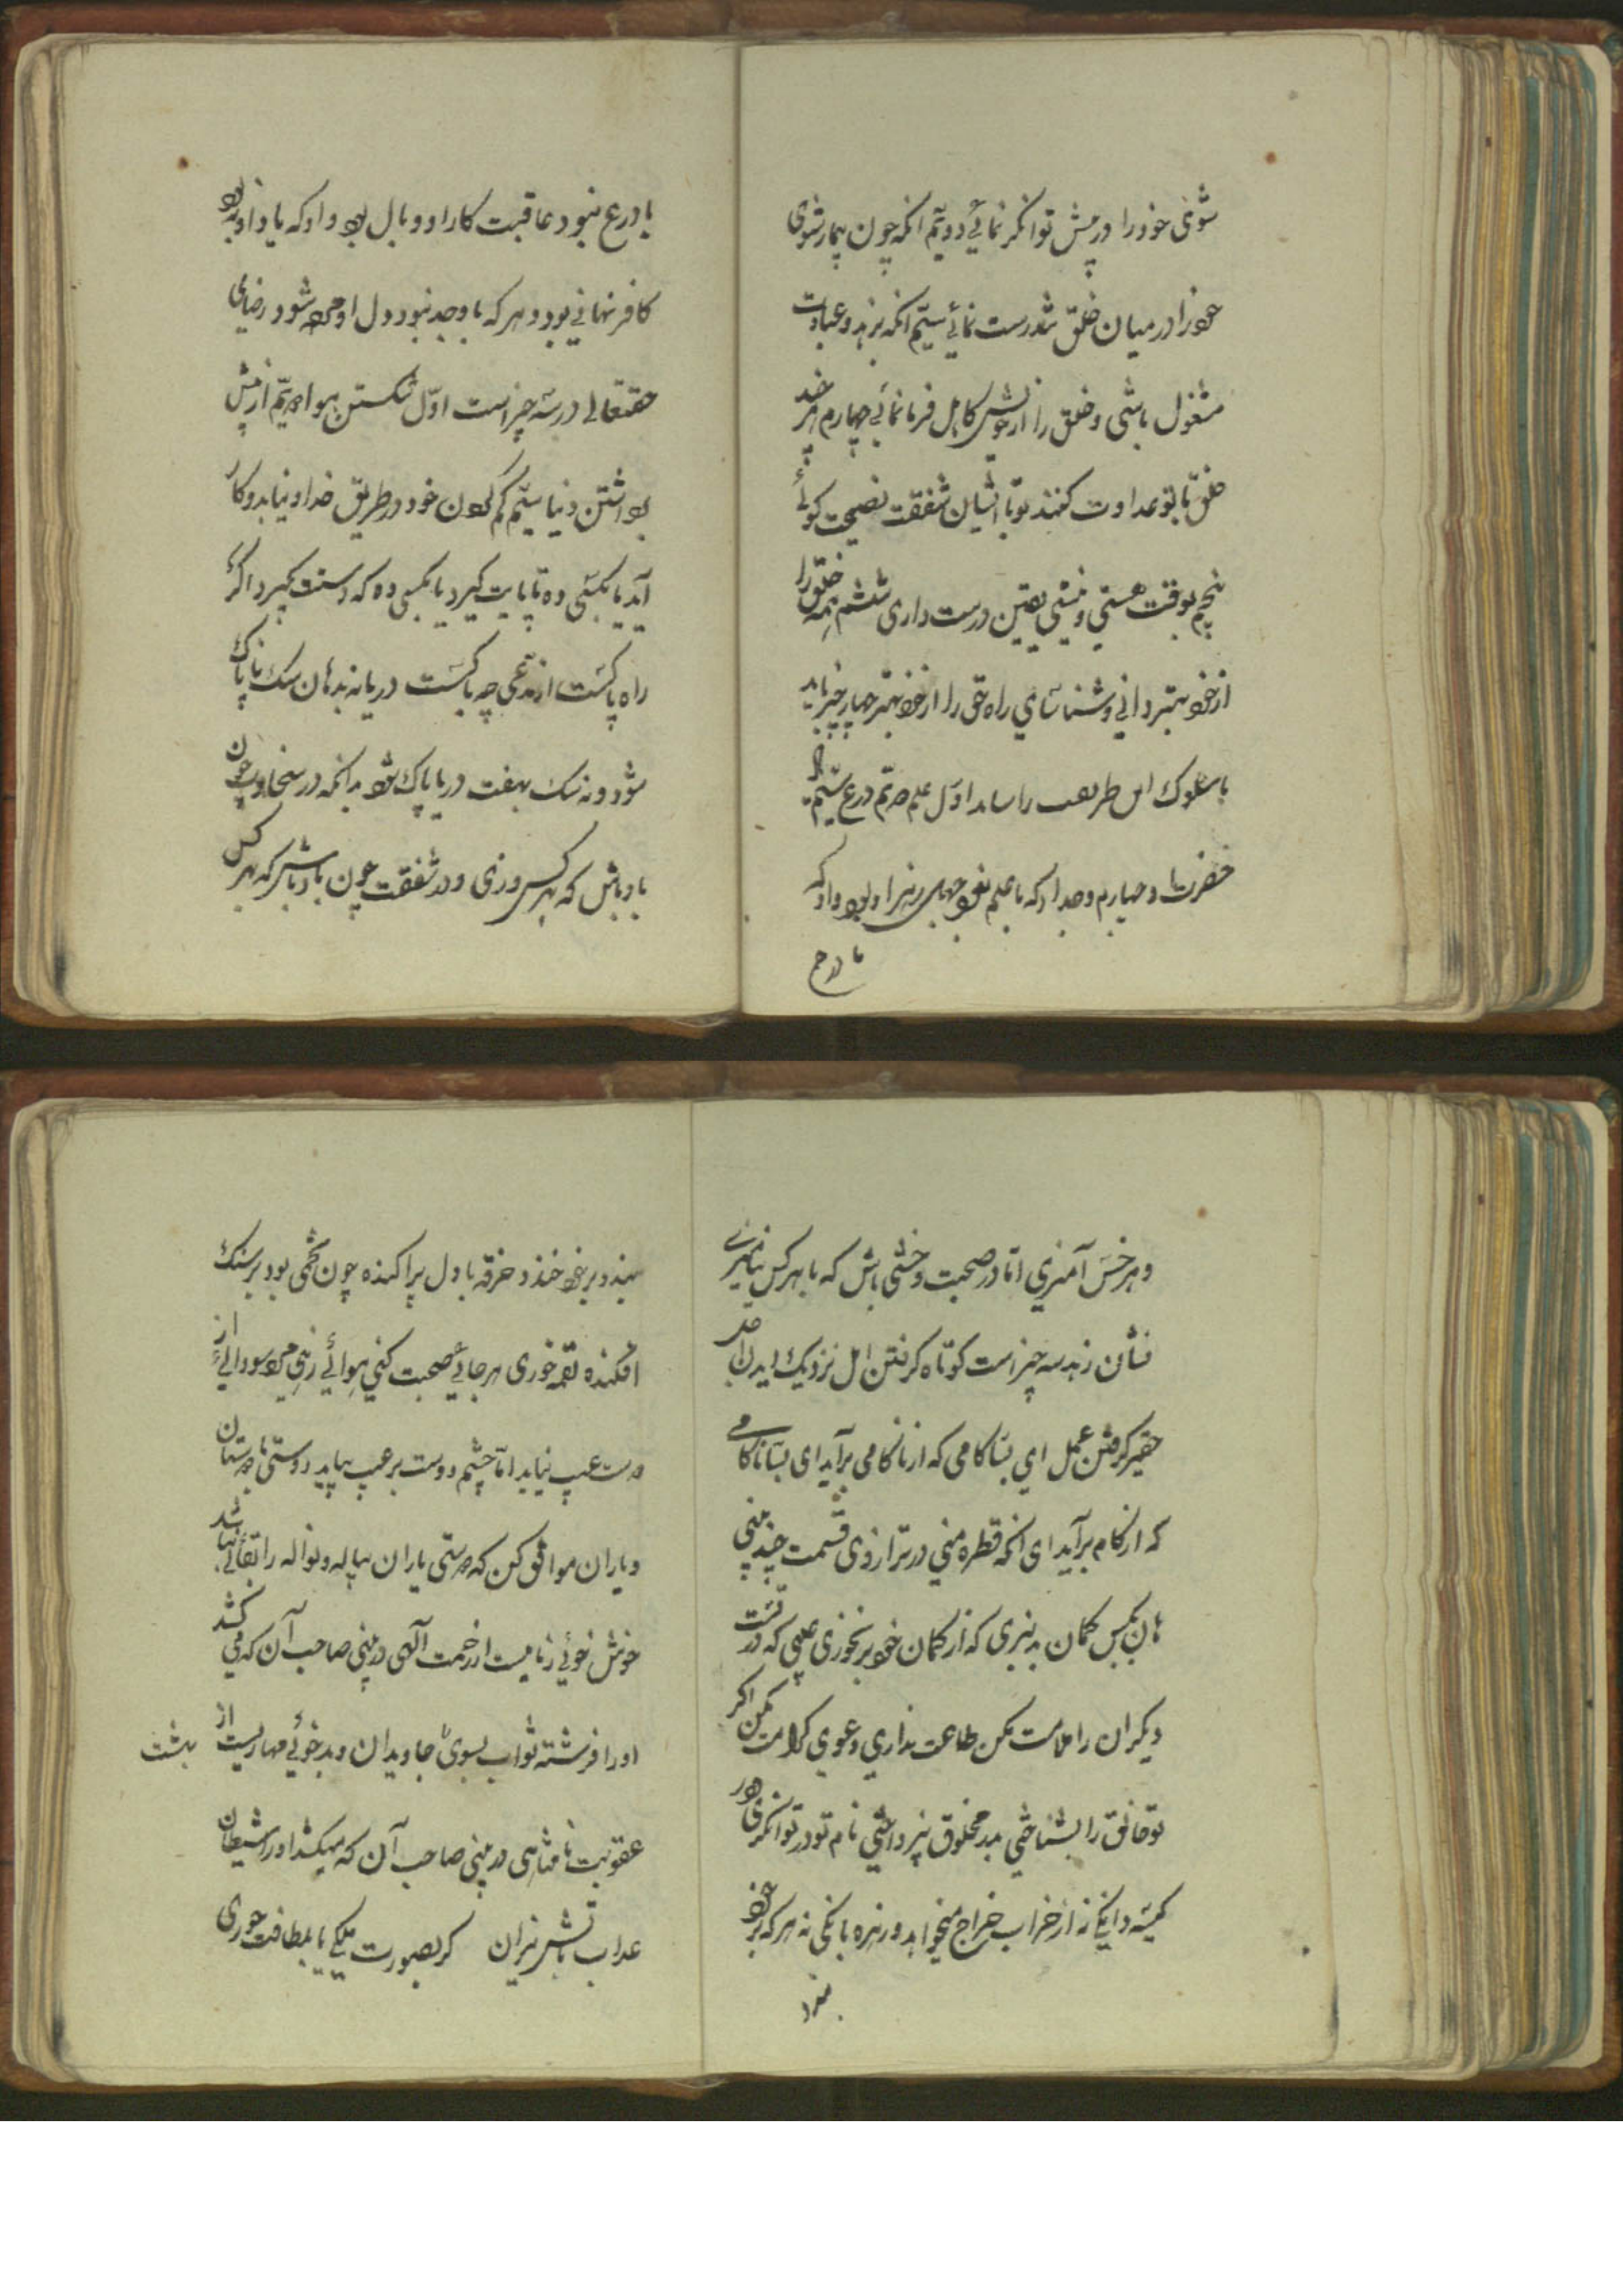 شوی خود را درمیش توانکر نمائی دویم انکه چون بیمار شوی
خود را در میان خلق تندرست نمائی سیّم انکه بزهد و عبادت
مشغول باشی و خلق را از خویش کاهل فرا نمائی چهارم هر چند
خلق با تو عداوت کنند تو با ایشان شفقت نصیحت کوئی
پنجم بوقت هستی و نیستی یقین درست داری ششم همه خلق را
از خود بهتر دانی و شناسای راه حق را از خود بهتر چهار چیز باید
تا سلوک این طریقت را شاید اول علم دویّم ورع سیّم
و چهارم وجد اکه با علم نبود جهل رهبر او بود و اوکه
با ورع
با ورع نبود عاقبت کار او وبال بود و اوکه با او نبود
کافر نهانی بود و هرکه با وجد نبود دل او مرده شود رضای
حقتعالی در سه چیز است اوّل شکستن هوا دویّم از پیش
برداشتن دنیا سیّم کم کردن خود در طریق خدا و نیاید و کار
آید یا بکسی ده تا پایت کیرد یا بکسی ده که دستت بکیرد اکر
راه پاکست از مدّعی چه باکست دریا نه بدهان سک ناپاک
شود و نه سک بهفت دریا پاک شود بدانکه در سخاوت چون
باد باش که بهر کس وزی و در شفقت چون باد باش که بهر کس
و هر خس آمیزی امّا در صحبت وحشی باش که با هر کس نیامیزی
نشان زهد سه چیز است کوتاه کرفتن امل نزدیک دیدن اجل
حقیر کرفتن عمل ای بسا کامی که از ناکامی برآید ای بسا ناکامی
که از کام برآید ای انکه قطره منی در ترازوی قسمت چند منی
هان بکس کمان بد نبری که از کمان خود بر نخوری عیبی که در تست
دیکران را ملامت مکن طاعت نداری دعوی کرامت مکن اکر
تو خالق را بشناختی بدر مخلوق نپرداختی نام تو در توانکری در
کیسه دانکی نه از خراب خراج میخواهد و زهره بانکی نه هر که بر خود
بخندد
بیند و بر خود خندد خرقه با دل پراکنده چون تخمی بود بر سنک
افکنده لقمه خوری هر جائی صحبت کنی هوائی زهی مرد سودائی از
دوست عیب نیاید امّا چشم دوست بر عیب نیاید دوستی با دوستان
و یاران موافق کن که دوستی یاران پیاله و نواله را بقائی نباشد
خوش خوئی زمامیست از رحمت الهی در بینی صاحب آن که می کشد
او را فرشته ثواب بسوی جاویدان و بدخوئی مهاریست از
بهشت
عقوبت نامتناهی در بینی صاحب آن که میکشد او را شیطان
عذاب بآتش نیران کر بصورت ملکی یا بلطافت حوری